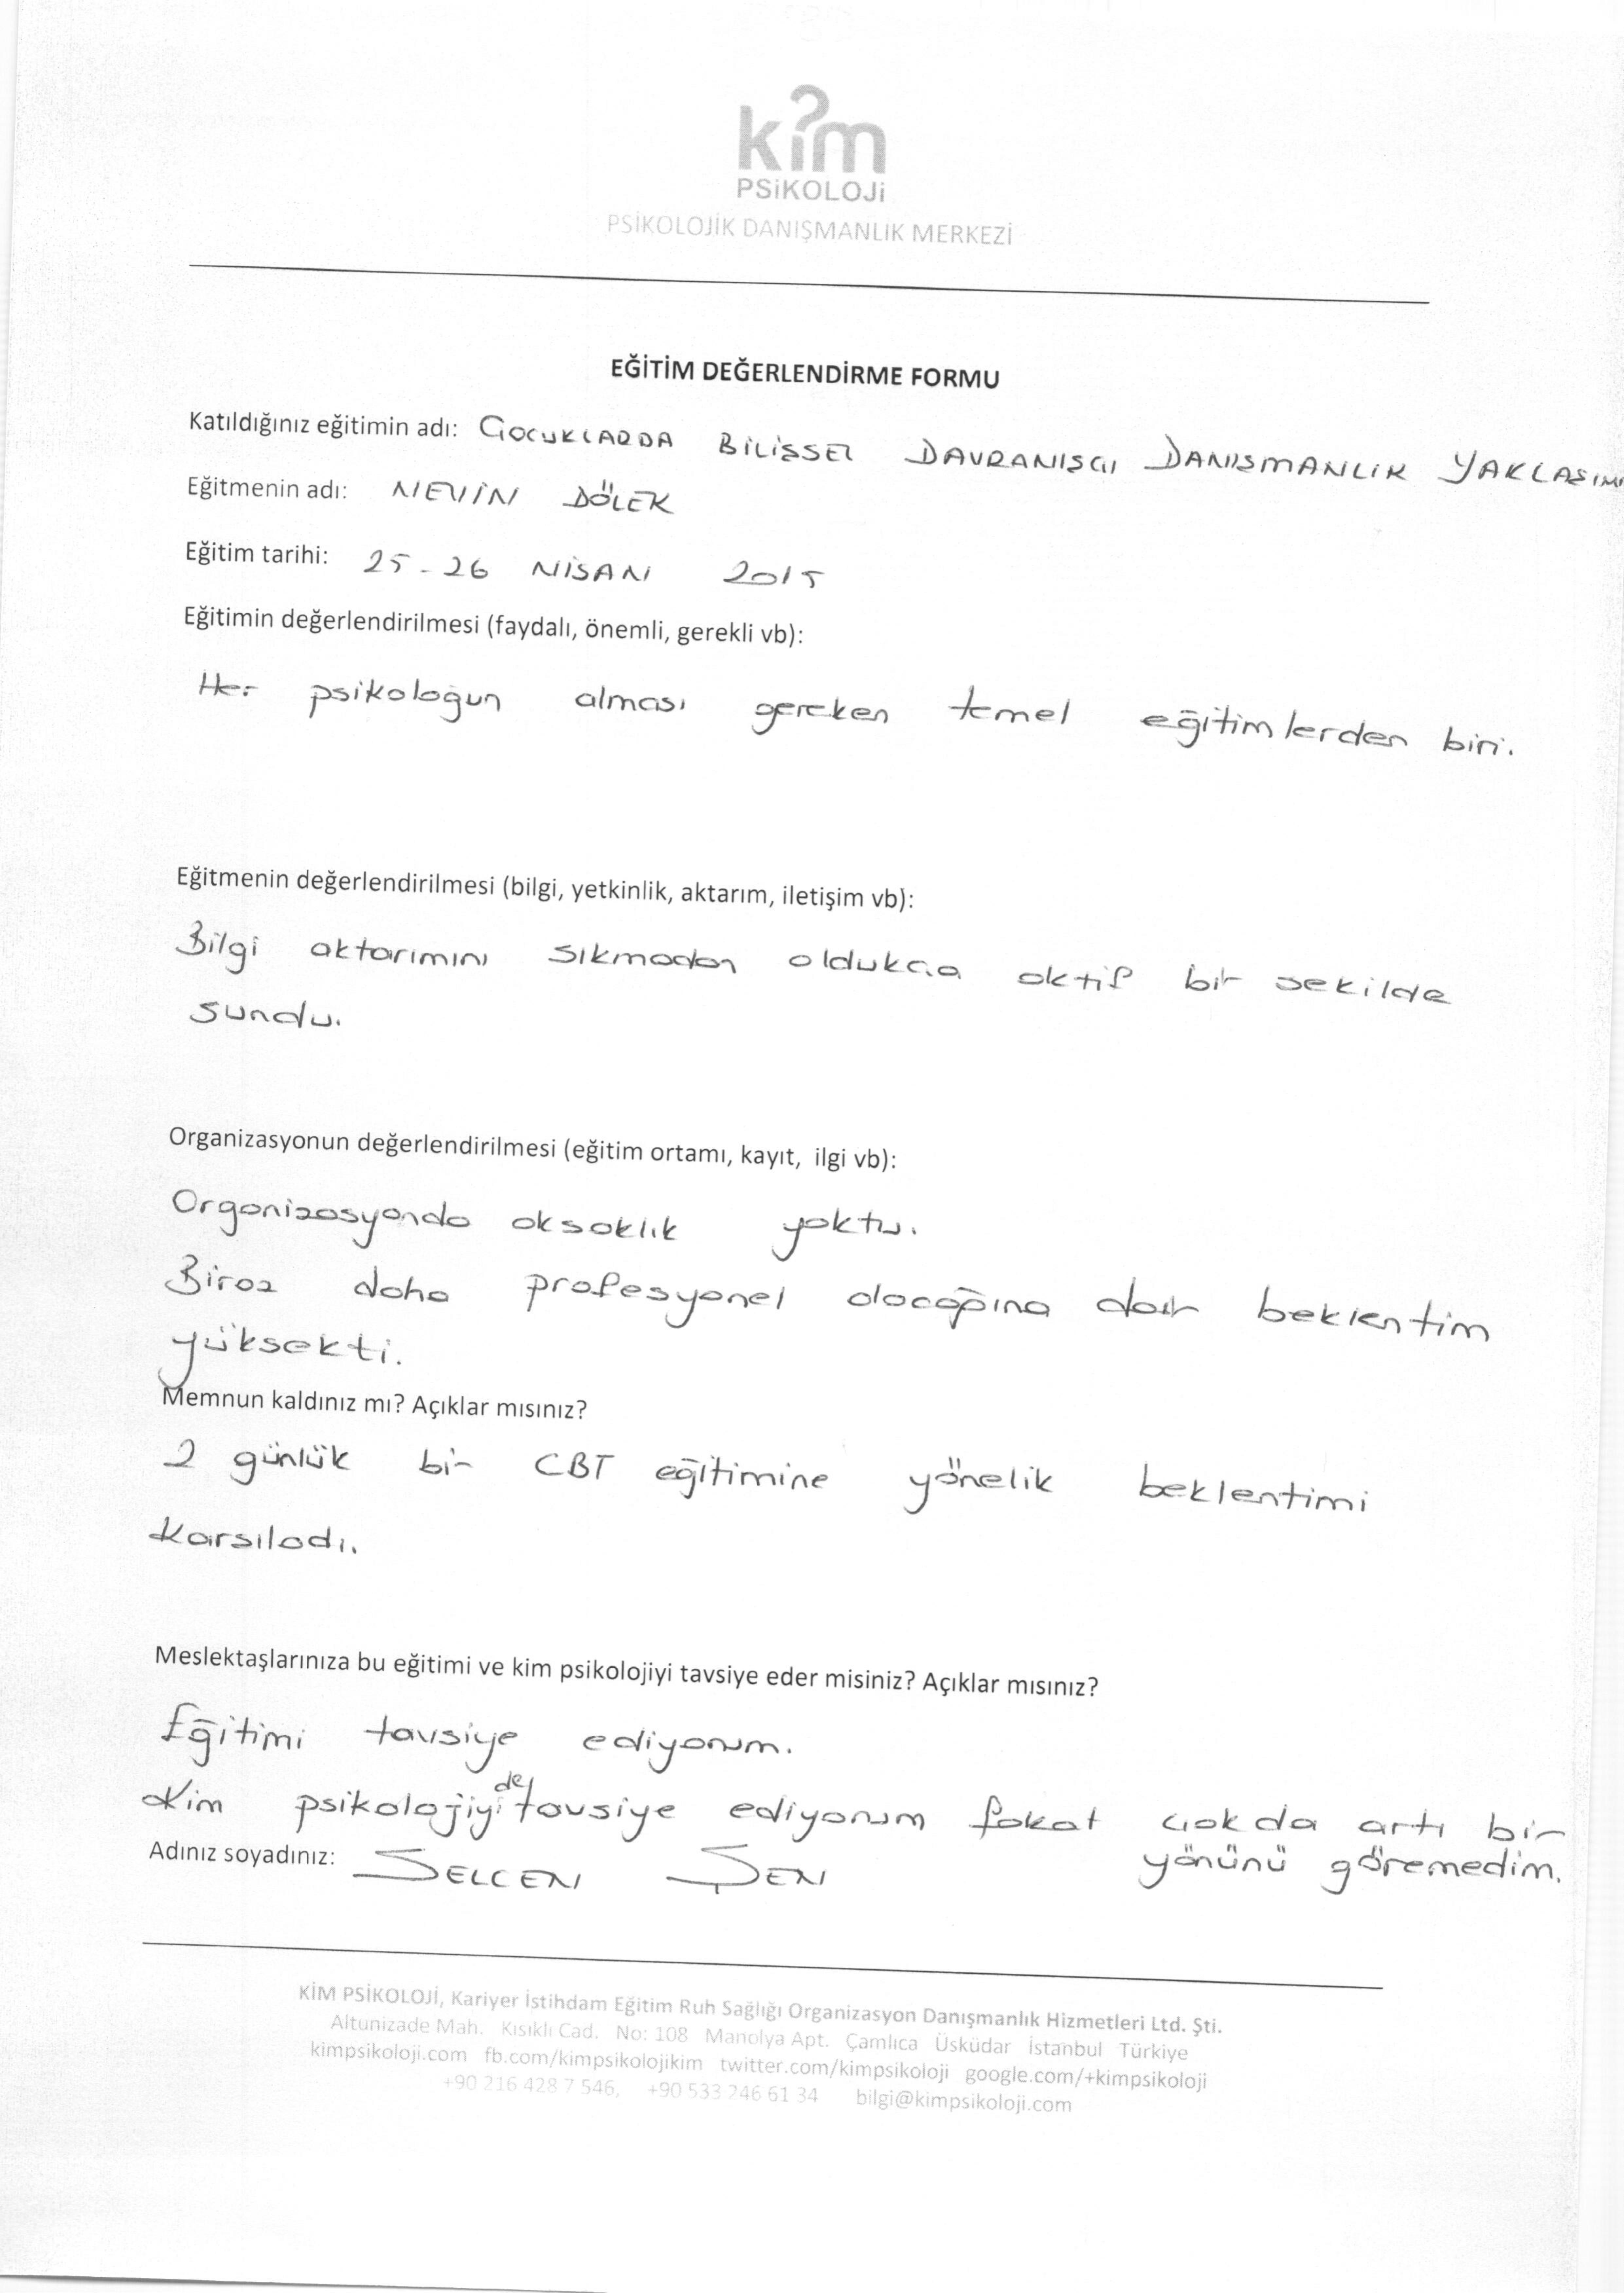 kim
PSiKOLOJi
PSİKOLOJİK DANIŞMANLIK MERKEZİ
EĞİTİM DEĞERLENDİRME FORMU
Katıldığınız eğitimin adı: ÇOCUKLARDA BİLİŞSEL DAVRANIŞÇI DANIŞMANLIK YAKLAŞIMI
Eğitmenin adı: NEVİN DÖLEK
Eğitim tarihi: 25-26 NİSAN 2015
Eğitimin değerlendirilmesi (faydalı, önemli, gerekli vb):
Her psikoloğun alması gereken temel eğitimlerden biri.
Eğitmenin değerlendirilmesi (bilgi, yetkinlik, aktarım, iletişim vb):
Bilgi aktarımını sıkmadan oldukça aktif bir şekilde
sundu.
Organizasyonun değerlendirilmesi (eğitim ortamı, kayıt, ilgi vb):
Organizasyonda aksaklık yoktu.
Biraz daha profesyonel olacağına dair beklentim
yüksekti.
Memnun kaldınız mı? Açıklar mısınız?
2 günlük bir CBT eğitimine yönelik beklentimi
karşıladı.
Meslektaşlarınıza bu eğitimi ve kim psikolojiyi tavsiye eder misiniz? Açıklar mısınız?
Eğitimi tavsiye ediyorum.
Kim psikolojiyi de tavsiye ediyorum fakat çok da artı bir
yönünü göremedim.
Adınız soyadınız: SELCEN ŞEN
KİM PSİKOLOJİ, Kariyer İstihdam Eğitim Ruh Sağlığı Organizasyon Danışmanlık Hizmetleri Ltd. Şti.
Altunizade Mah. Kısıklı Cad. No: 108 Manolya Apt. Çamlıca Üsküdar İstanbul Türkiye
kimpsikoloji.com fb.com/kimpsikolojikim twitter.com/kimpsikoloji google.com/+kimpsikoloji
+90 216 428 7 546, +90 533 746 61 34 bilgi@kimpsikoloji.com